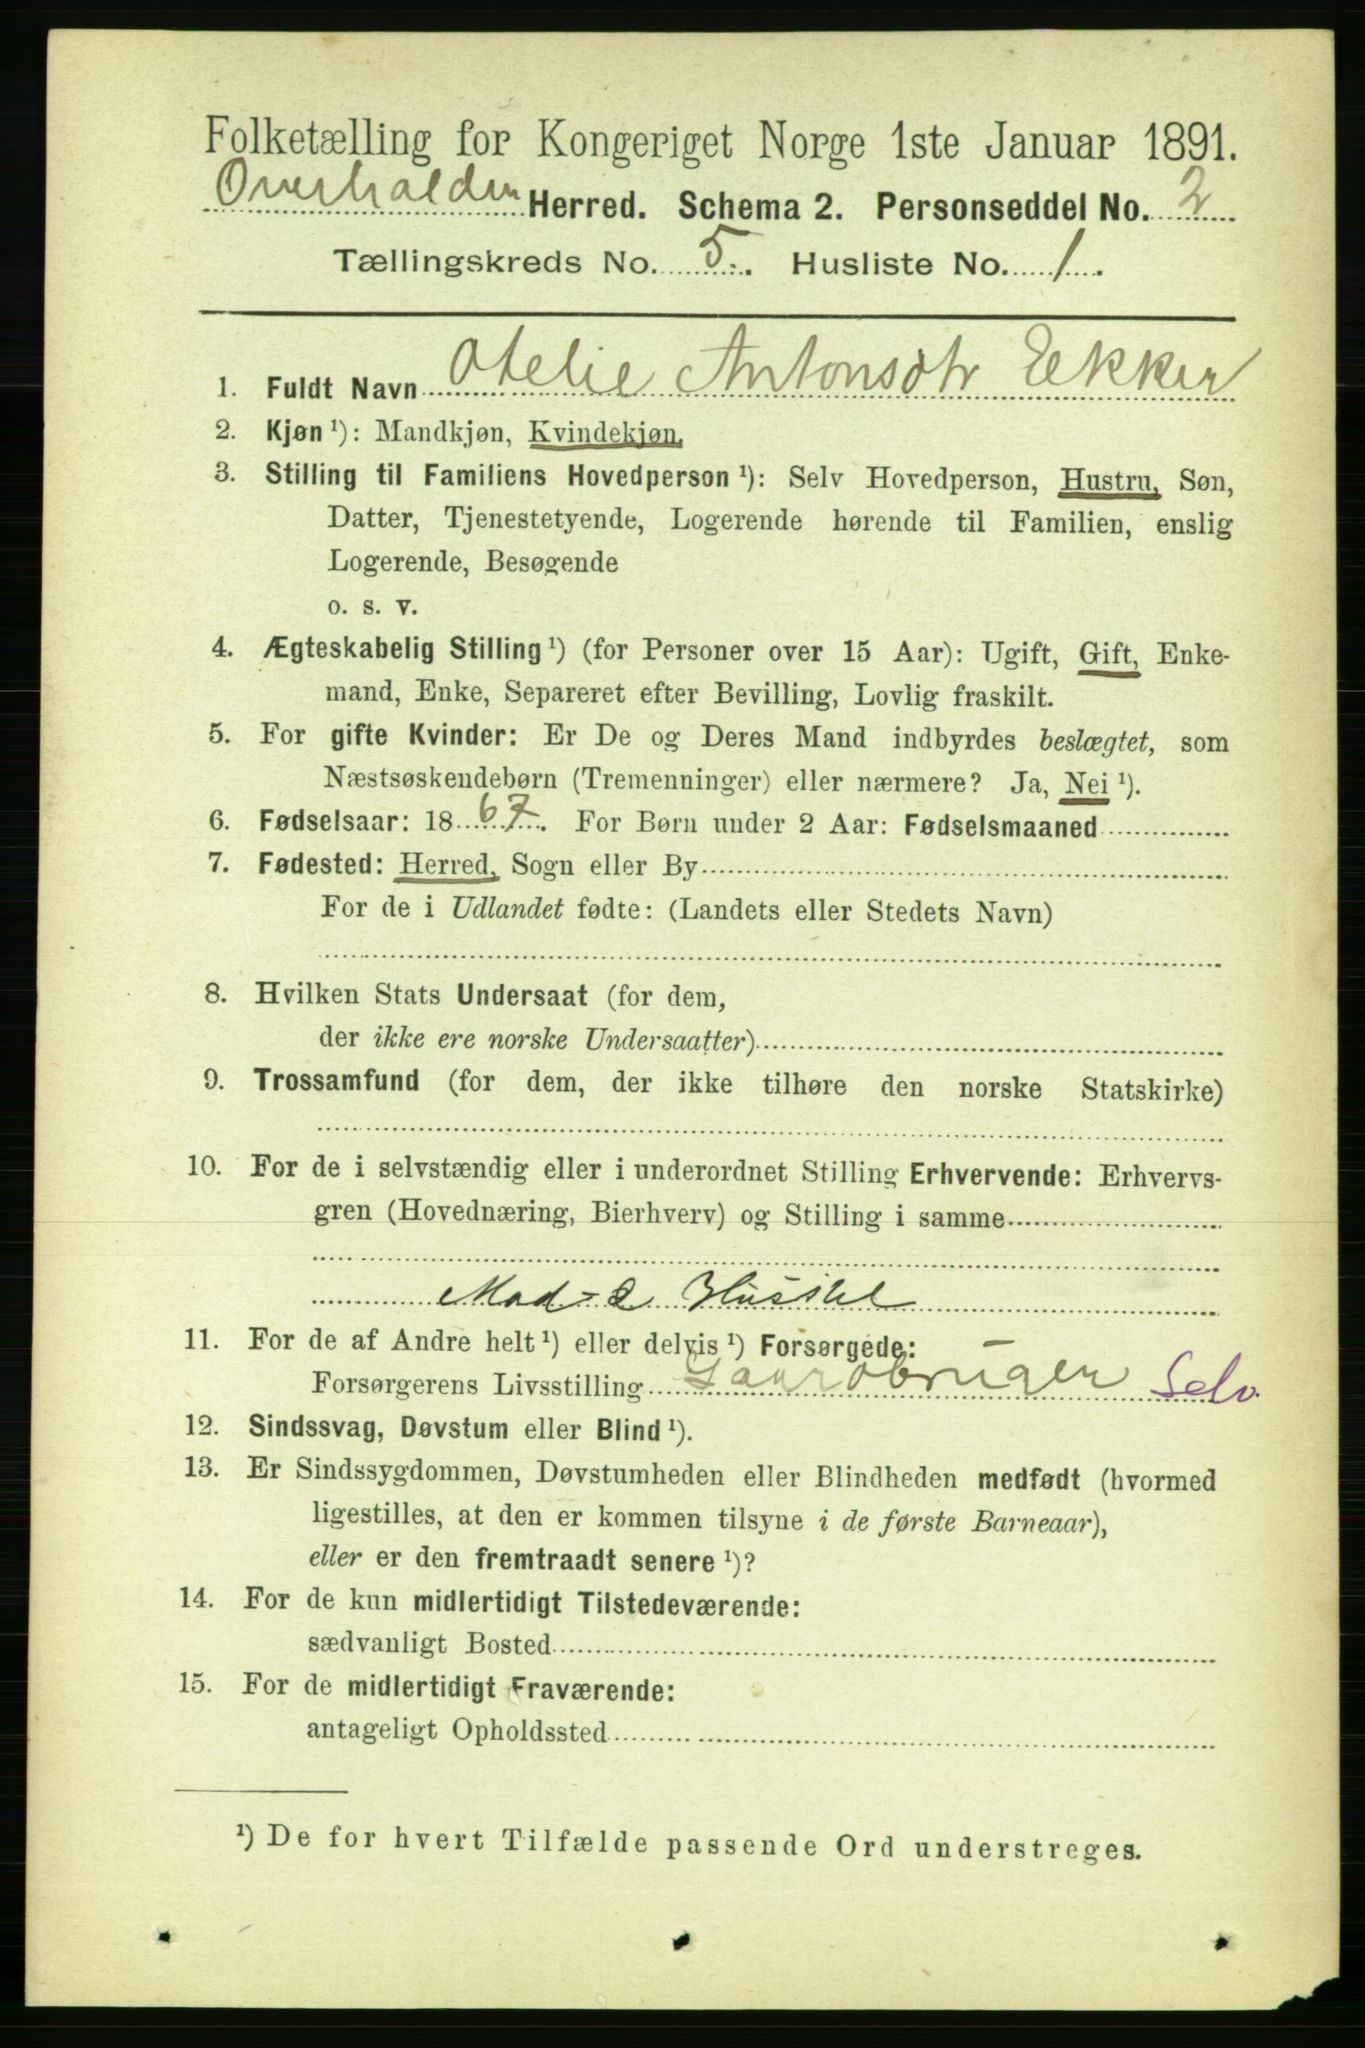 Folketælling for Kongeriget Norge 1ste Januar 1891.
Overhalden Herred. Schema 2. Personseddel No. 2
Tællingskreds No. 5. Husliste No. 1.
1. Fuldt Navn Otelie Antonsdtr Ekker
2. Kjøn ¹): Mandkjøn, Kvindekjøn.
3. Stilling til Familiens Hovedperson ¹): Selv Hovedperson, Hustru, Søn,
Datter, Tjenestetyende, Logerende hørende til Familien, enslig
Logerende, Besøgende
o. s. v.
4. Ægteskabelig Stilling ¹) (for Personer over 15 Aar): Ugift, Gift, Enke-
mand, Enke, Separeret efter Bevilling, Lovlig fraskilt.
5. For gifte Kvinder: Er De og Deres Mand indbyrdes beslægtet, som
Næstsøskendebørn (Tremenninger) eller nærmere? Ja, Nei ¹).
6. Fødselsaar: 1867. For Børn under 2 Aar: Fødselsmaaned
7. Fødested: Herred, Sogn eller By
For de i Udlandet fødte: (Landets eller Stedets Navn)
8. Hvilken Stats Undersaat (for dem,
der ikke ere norske Undersaatter)
9. Trossamfund (for dem, der ikke tilhøre den norske Statskirke)
10. For de i selvstændig eller i underordnet Stilling Erhvervende: Erhvervs-
gren (Hovednæring, Bierhverv) og Stilling i samme
Mad- & Husstel
11. For de af Andre helt ¹) eller delvis ¹) Forsørgede:
Forsørgerens Livsstilling Gaardbruger Selv.
12. Sindssvag, Døvstum eller Blind ¹).
13. Er Sindssygdommen, Døvstumheden eller Blindheden medfødt (hvormed
ligestilles, at den er kommen tilsyne i de første Barneaar),
eller er den fremtraadt senere ¹)?
14. For de kun midlertidigt Tilstedeværende:
sædvanligt Bosted
15. For de midlertidigt Fraværende:
antageligt Opholdssted
¹) De for hvert Tilfælde passende Ord understreges.